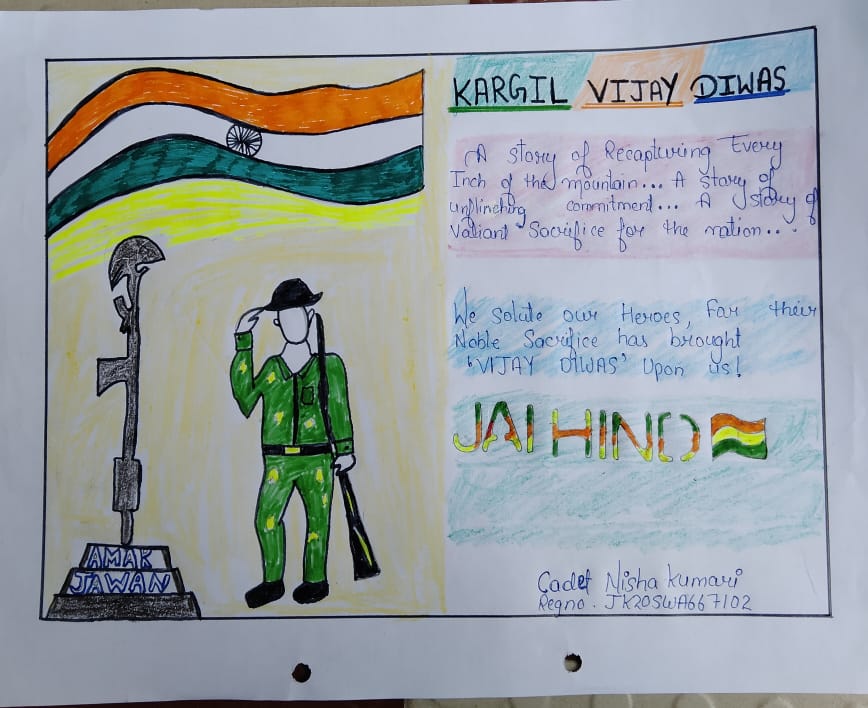 KARGIL VIJAY DIWAS
A story of Recapturing Every
Inch of the mountain... A story of
unflinching commitment... A story of
Valiant Sacrifice for the nation...
We salute our Heroes, For their
Noble Sacrifice has brought
'VIJAY DIWAS' Upon us!
JAI HIND
AMAR
JAWAN
Cadet Nisha Kumari
Regno. JK20SWA667102